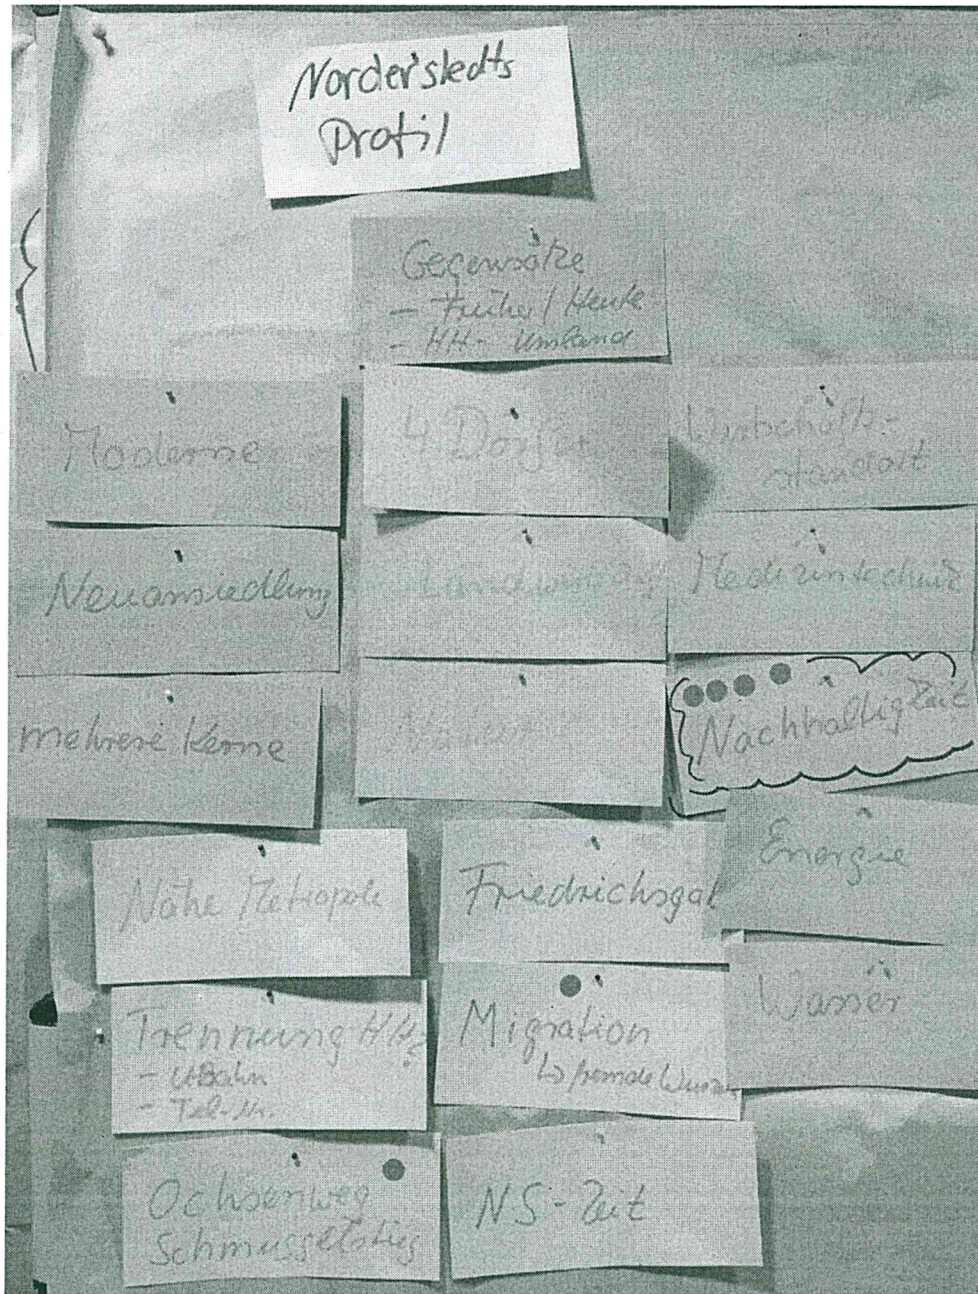 Norderstedts
Profil
Gegensätze
- Früher / Heute
- HH - Umland
Moderne
4 Dörfer
Wirtschafts-
standort
Neuansiedlung
Medizintechnik
mehrere Kerne
Natur
Nachhaltigkeit
Nähe Metropole
Friedrichsgab
Energie
Trennung HH?
- U-Bahn
- Tel-Nr.
Migration
↳ fremde Wurz
Wasser
Ochsenweg
NS-Zeit